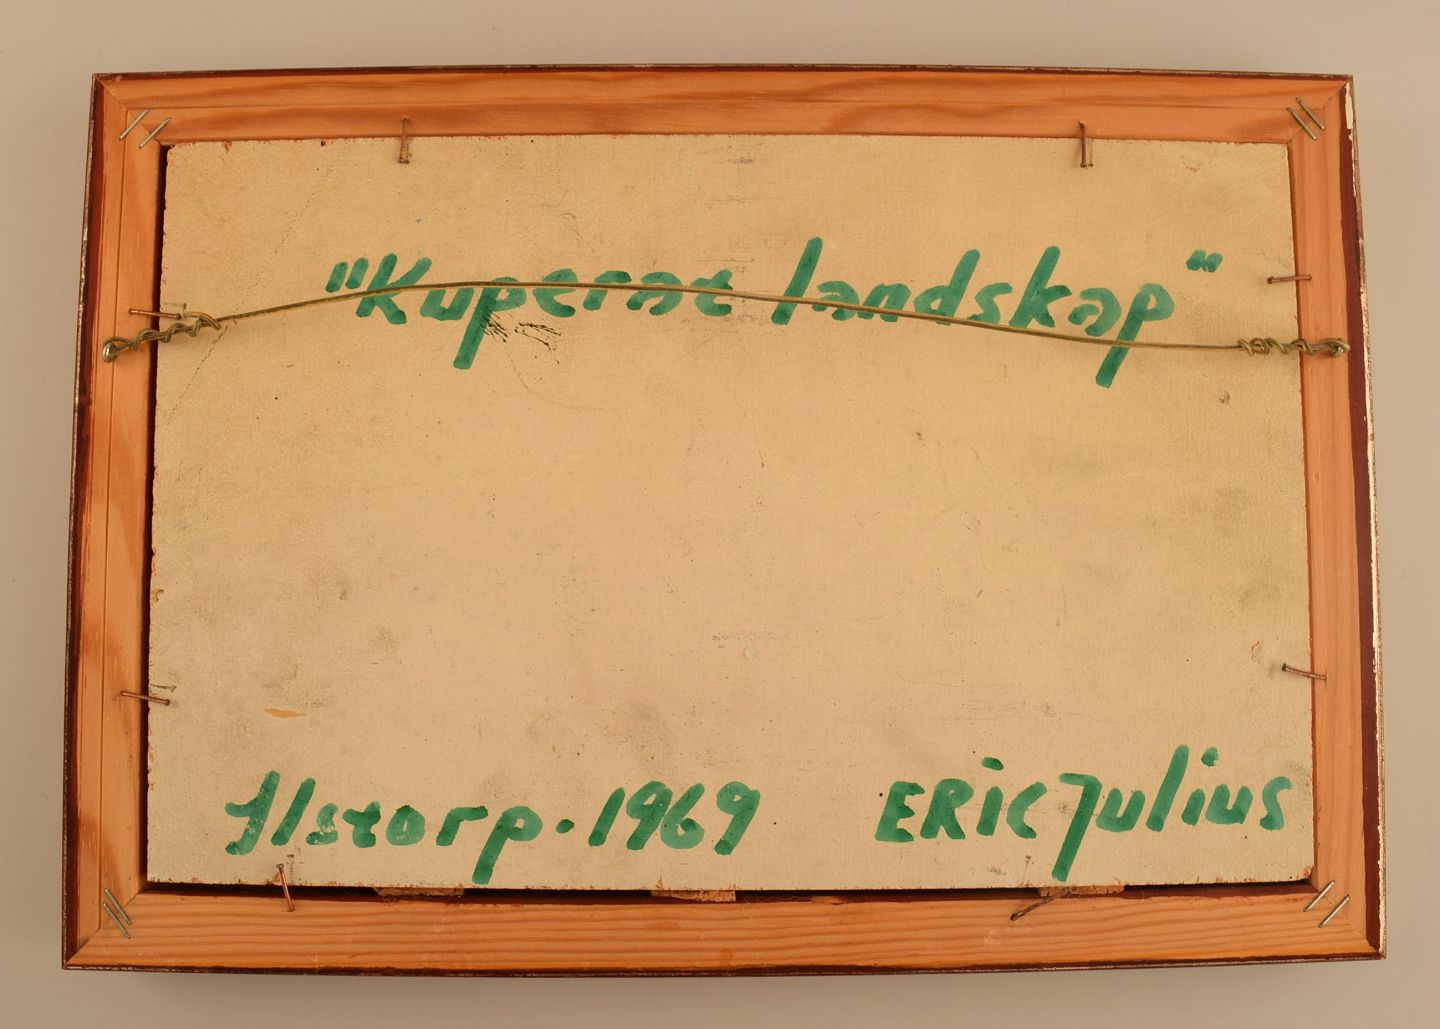 "Kuperat landskap"
Ilstorp. 1969 ERIC Julius